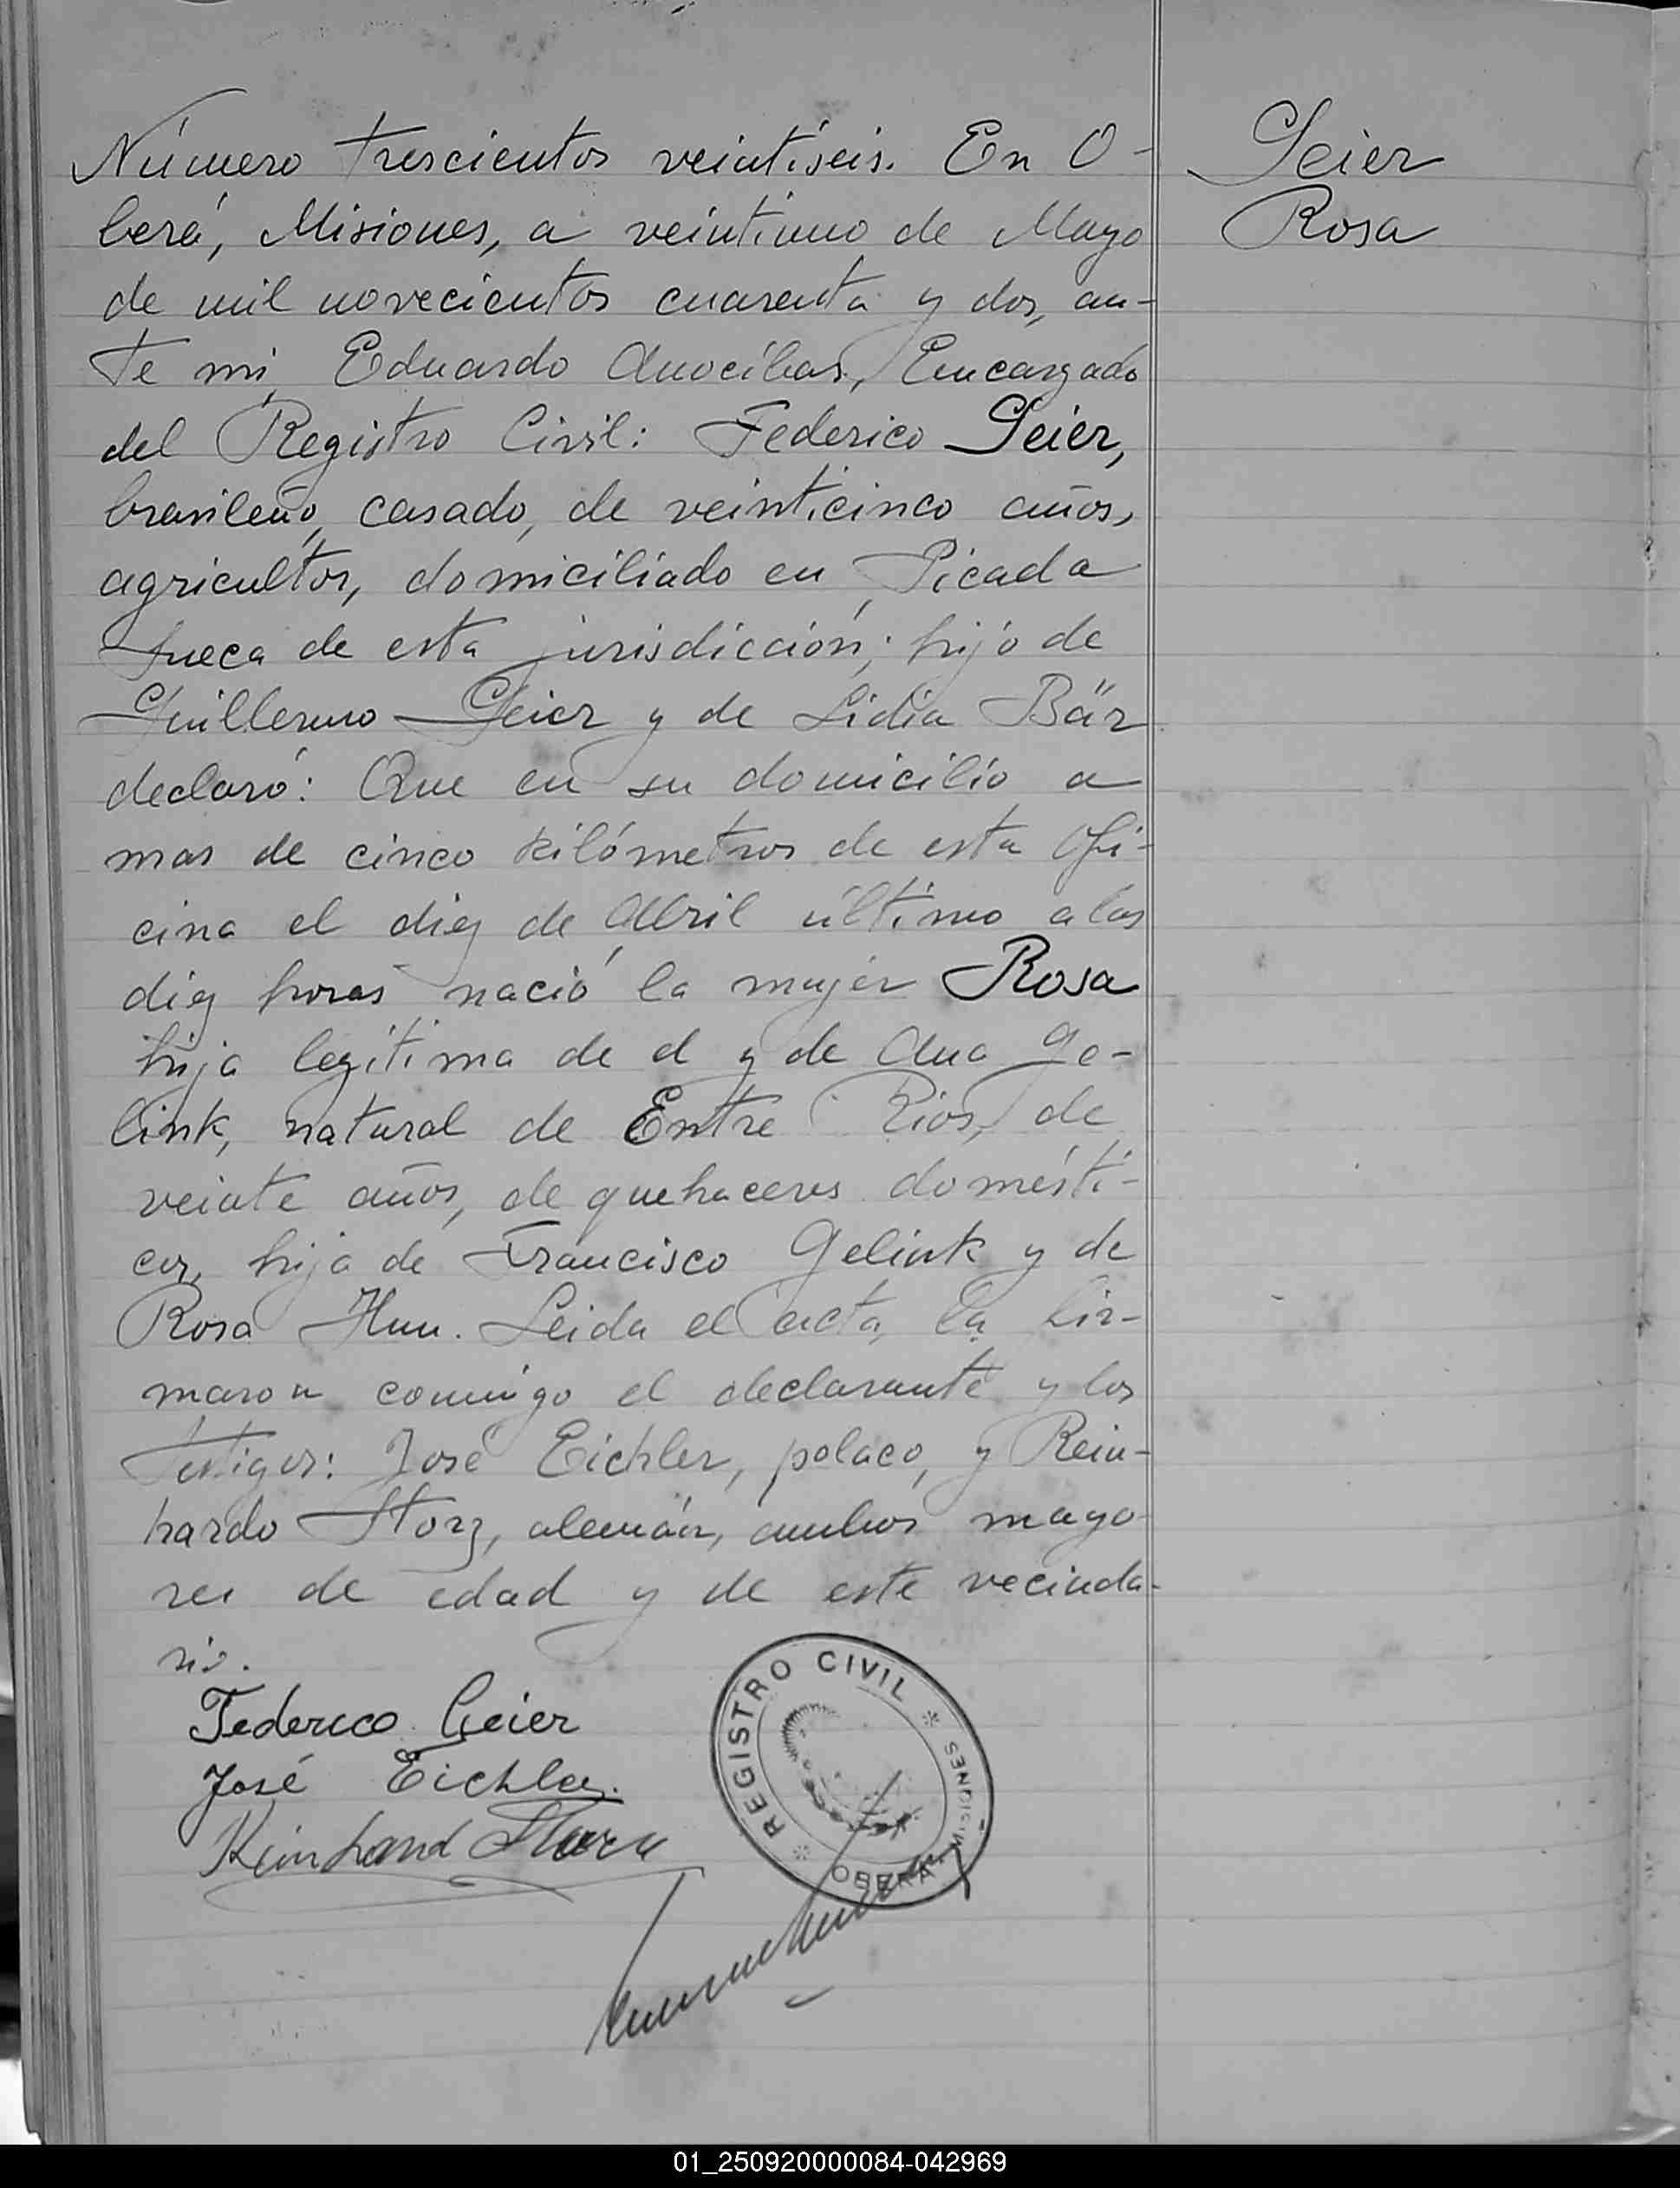 Número trescientos veintiseis. En O-
berá, Misiones, a veintiuno de Mayo
de mil novecientos cuarenta y dos, an-
te mi, Eduardo Anocíbar, Encargado
del Registro Civil: Federico Geier,
brasileño, casado, de veinticinco años,
agricultor, domiciliado en Picada
Sueca de esta jurisdicción; hijo de
Guillermo Geier y de Lidia Bär
declaró: Que en su domicilio a
mas de cinco kilómetros de esta Ofi-
cina el diez de Abril último a las
diez horas nació la mujer Rosa
hija legítima de el y de Ana Ge-
link, natural de Entre Rios, de
veinte años, de quehaceres domésti-
cos, hija de Francisco Gelink y de
Rosa Leida el acta, la fir-
maron conmigo el declarante y los
testigos: José Eichler, polaco, y Rein-
hardo Storz, alemán, ambos mayo
res de edad y de este vecinda-
rio.
Geier
Rosa
Federico Geier
José Eichler.
Reinhard Storz
REGISTRO CIVIL
OBERA - MISIONES
01_250920000084-042969